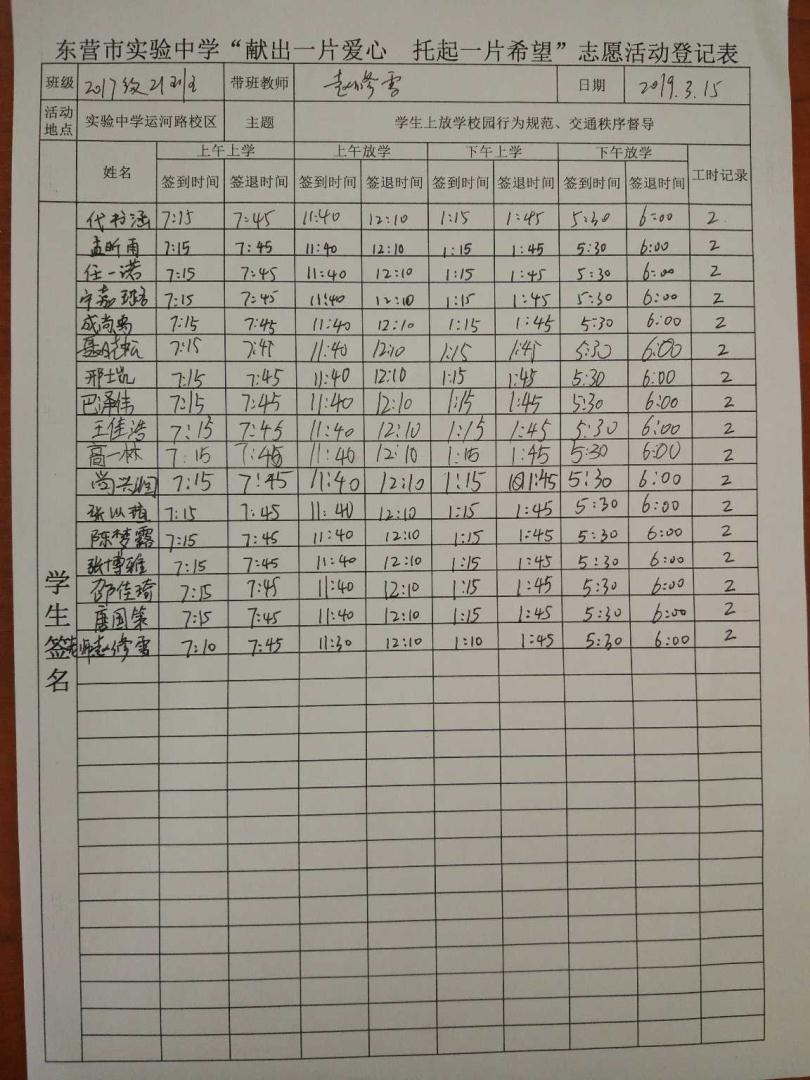 东营市实验中学“献出一片爱心 托起一片希望”志愿活动登记表
班级 2017级21班 带班教师 赵修雪 日期 2019.3.15
活动地点 实验中学运河路校区 主题 学生上放学校园行为规范、交通秩序督导
姓名 上午上学 上午放学 下午上学 下午放学 工时记录
签到时间 签退时间 签到时间 签退时间 签到时间 签退时间 签到时间 签退时间
学生签名
7:15 7:45 11:40 12:10 1:15 1:45 5:30 6:00 2
孟昕雨 7:15 7:45 11:40 12:10 1:15 1:45 5:30 6:00 2
任一诺 7:15 7:45 11:40 12:10 1:15 1:45 5:30 6:00 2
7:15 7:45 11:40 12:10 1:15 1:45 5:30 6:00 2
成尚禹 7:15 7:45 11:40 12:10 1:15 1:45 5:30 6:00 2
7:15 7:45 11:40 12:10 1:15 1:45 5:30 6:00 2
邢士凯 7:15 7:45 11:40 12:10 1:15 1:45 5:30 6:00 2
巴泽伟 7:15 7:45 11:40 12:10 1:15 1:45 5:30 6:00 2
王佳浩 7:15 7:45 11:40 12:10 1:15 1:45 5:30 6:00 2
高一林 7:15 7:45 11:40 12:10 1:15 1:45 5:30 6:00 2
尚兴润 7:15 7:45 11:40 12:10 1:15 1:45 5:30 6:00 2
7:15 7:45 11:40 12:10 1:15 1:45 5:30 6:00 2
陈梦露 7:15 7:45 11:40 12:10 1:15 1:45 5:30 6:00 2
张博雅 7:15 7:45 11:40 12:10 1:15 1:45 5:30 6:00 2
邵佳琦 7:15 7:45 11:40 12:10 1:15 1:45 5:30 6:00 2
唐国策 7:15 7:45 11:40 12:10 1:15 1:45 5:30 6:00 2
老师赵修雪 7:10 7:45 11:30 12:10 1:10 1:45 5:30 6:00 2